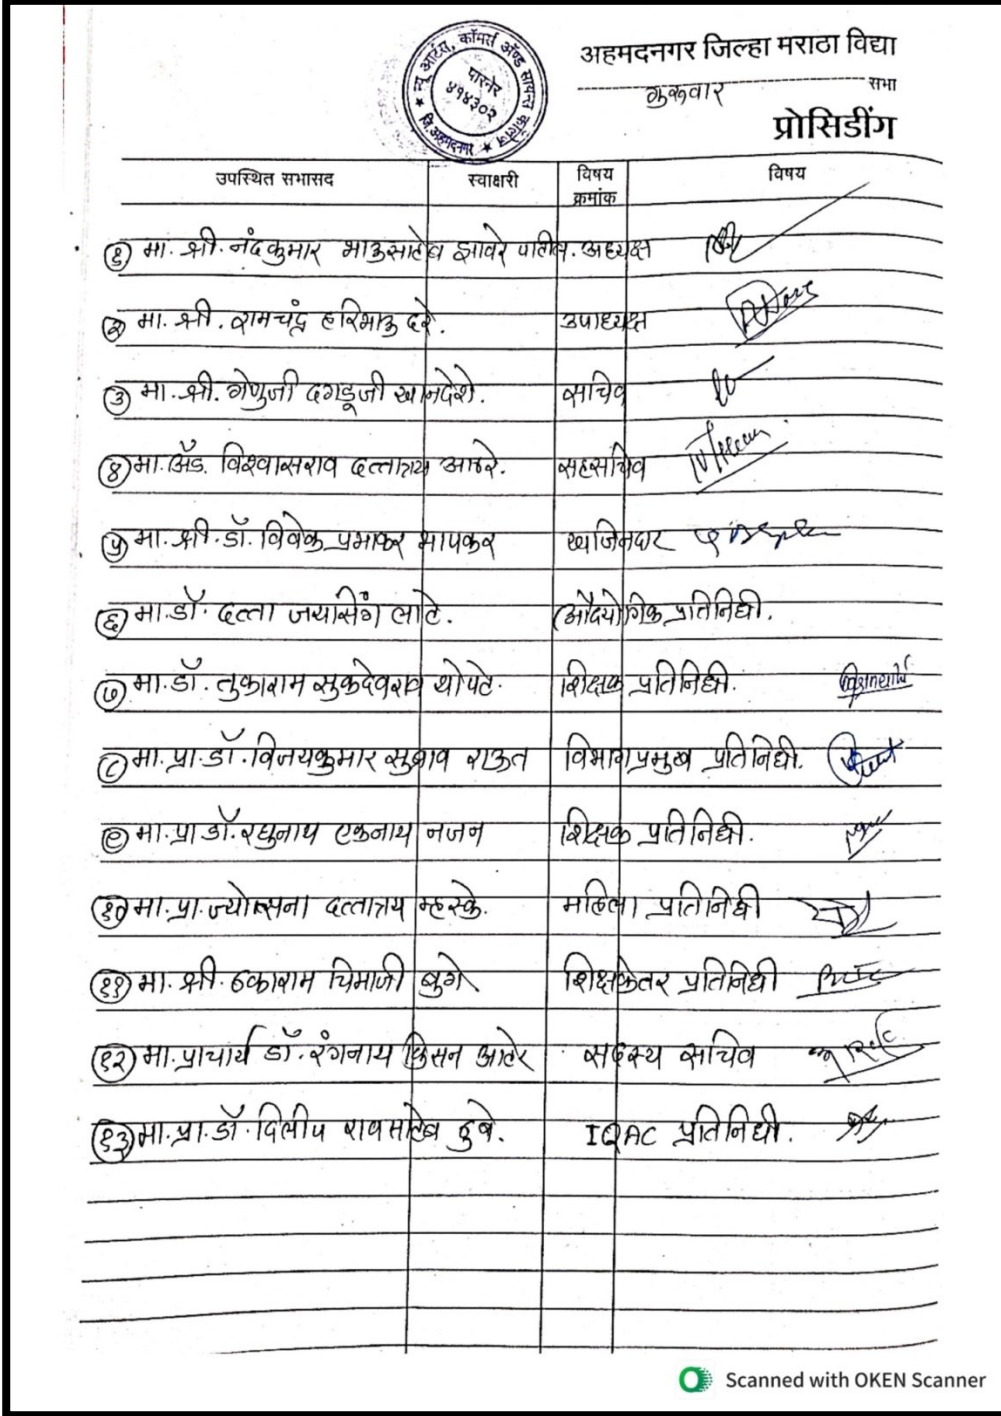 न्यू आर्टस, कॉमर्स अ‍ॅण्ड सायन्स कॉलेज
पारनेर
४१४३०२
जि.अहमदनगर
अहमदनगर जिल्हा मराठा विद्या
गुरूवार सभा
प्रोसिडींग
उपस्थित सभासद स्वाक्षरी विषय क्रमांक विषय
१ मा. श्री. नंदकुमार भाऊसाहेब झावरे पाटील. अध्यक्ष
२ मा. श्री. रामचंद्र हरिभाऊ दरे. उपाध्यक्ष
३ मा. श्री. गेणुजी दगडूजी खानदेशे. सचिव
४ मा. अ‍ॅड. विश्वासराव दत्तात्रय आठरे. सहसचिव
५ मा. श्री. डॉ. विवेक प्रभाकर भापकर खजिनदार
६ मा. डॉ. दत्ता जयसिंग लाटे. (औदयोगिक प्रतिनिधी.
७ मा. डॉ. तुकाराम सुकदेवराव थोपटे. शिक्षक प्रतिनिधी.
८ मा. प्रा. डॉ. विजयकुमार राऊत विभागप्रमुख प्रतिनिधी.
९ मा. प्रा डॉ. रघुनाथ एकनाथ नजन शिक्षक प्रतिनिधी.
१० मा. प्रा. ज्योत्सना दत्तात्रय म्हस्के. महिला प्रतिनिधी
११ मा. श्री. ठकाराम चिमाजी बुगे शिक्षकेतर प्रतिनिधी
१२ मा. प्राचार्य डॉ. रंगनाथ किसन आहेर सदस्य सचिव
१३ मा. प्रा. डॉ. दिलीप रावसाहेब ठुबे. IQAC प्रतिनिधी.
Scanned with OKEN Scanner